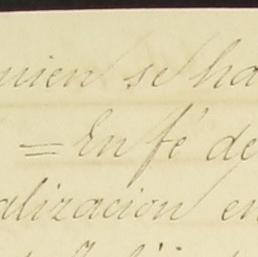 uien se ha
= En fé de
alizacion en